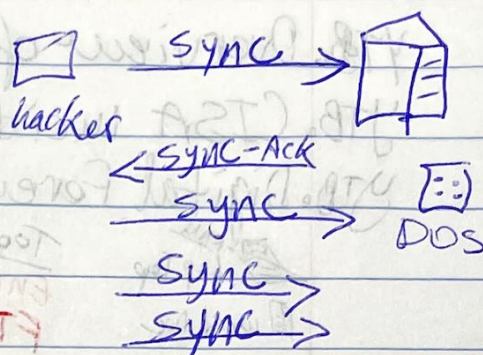 Sync
hacker
Sync-Ack
Sync
DOS
Sync
Sync